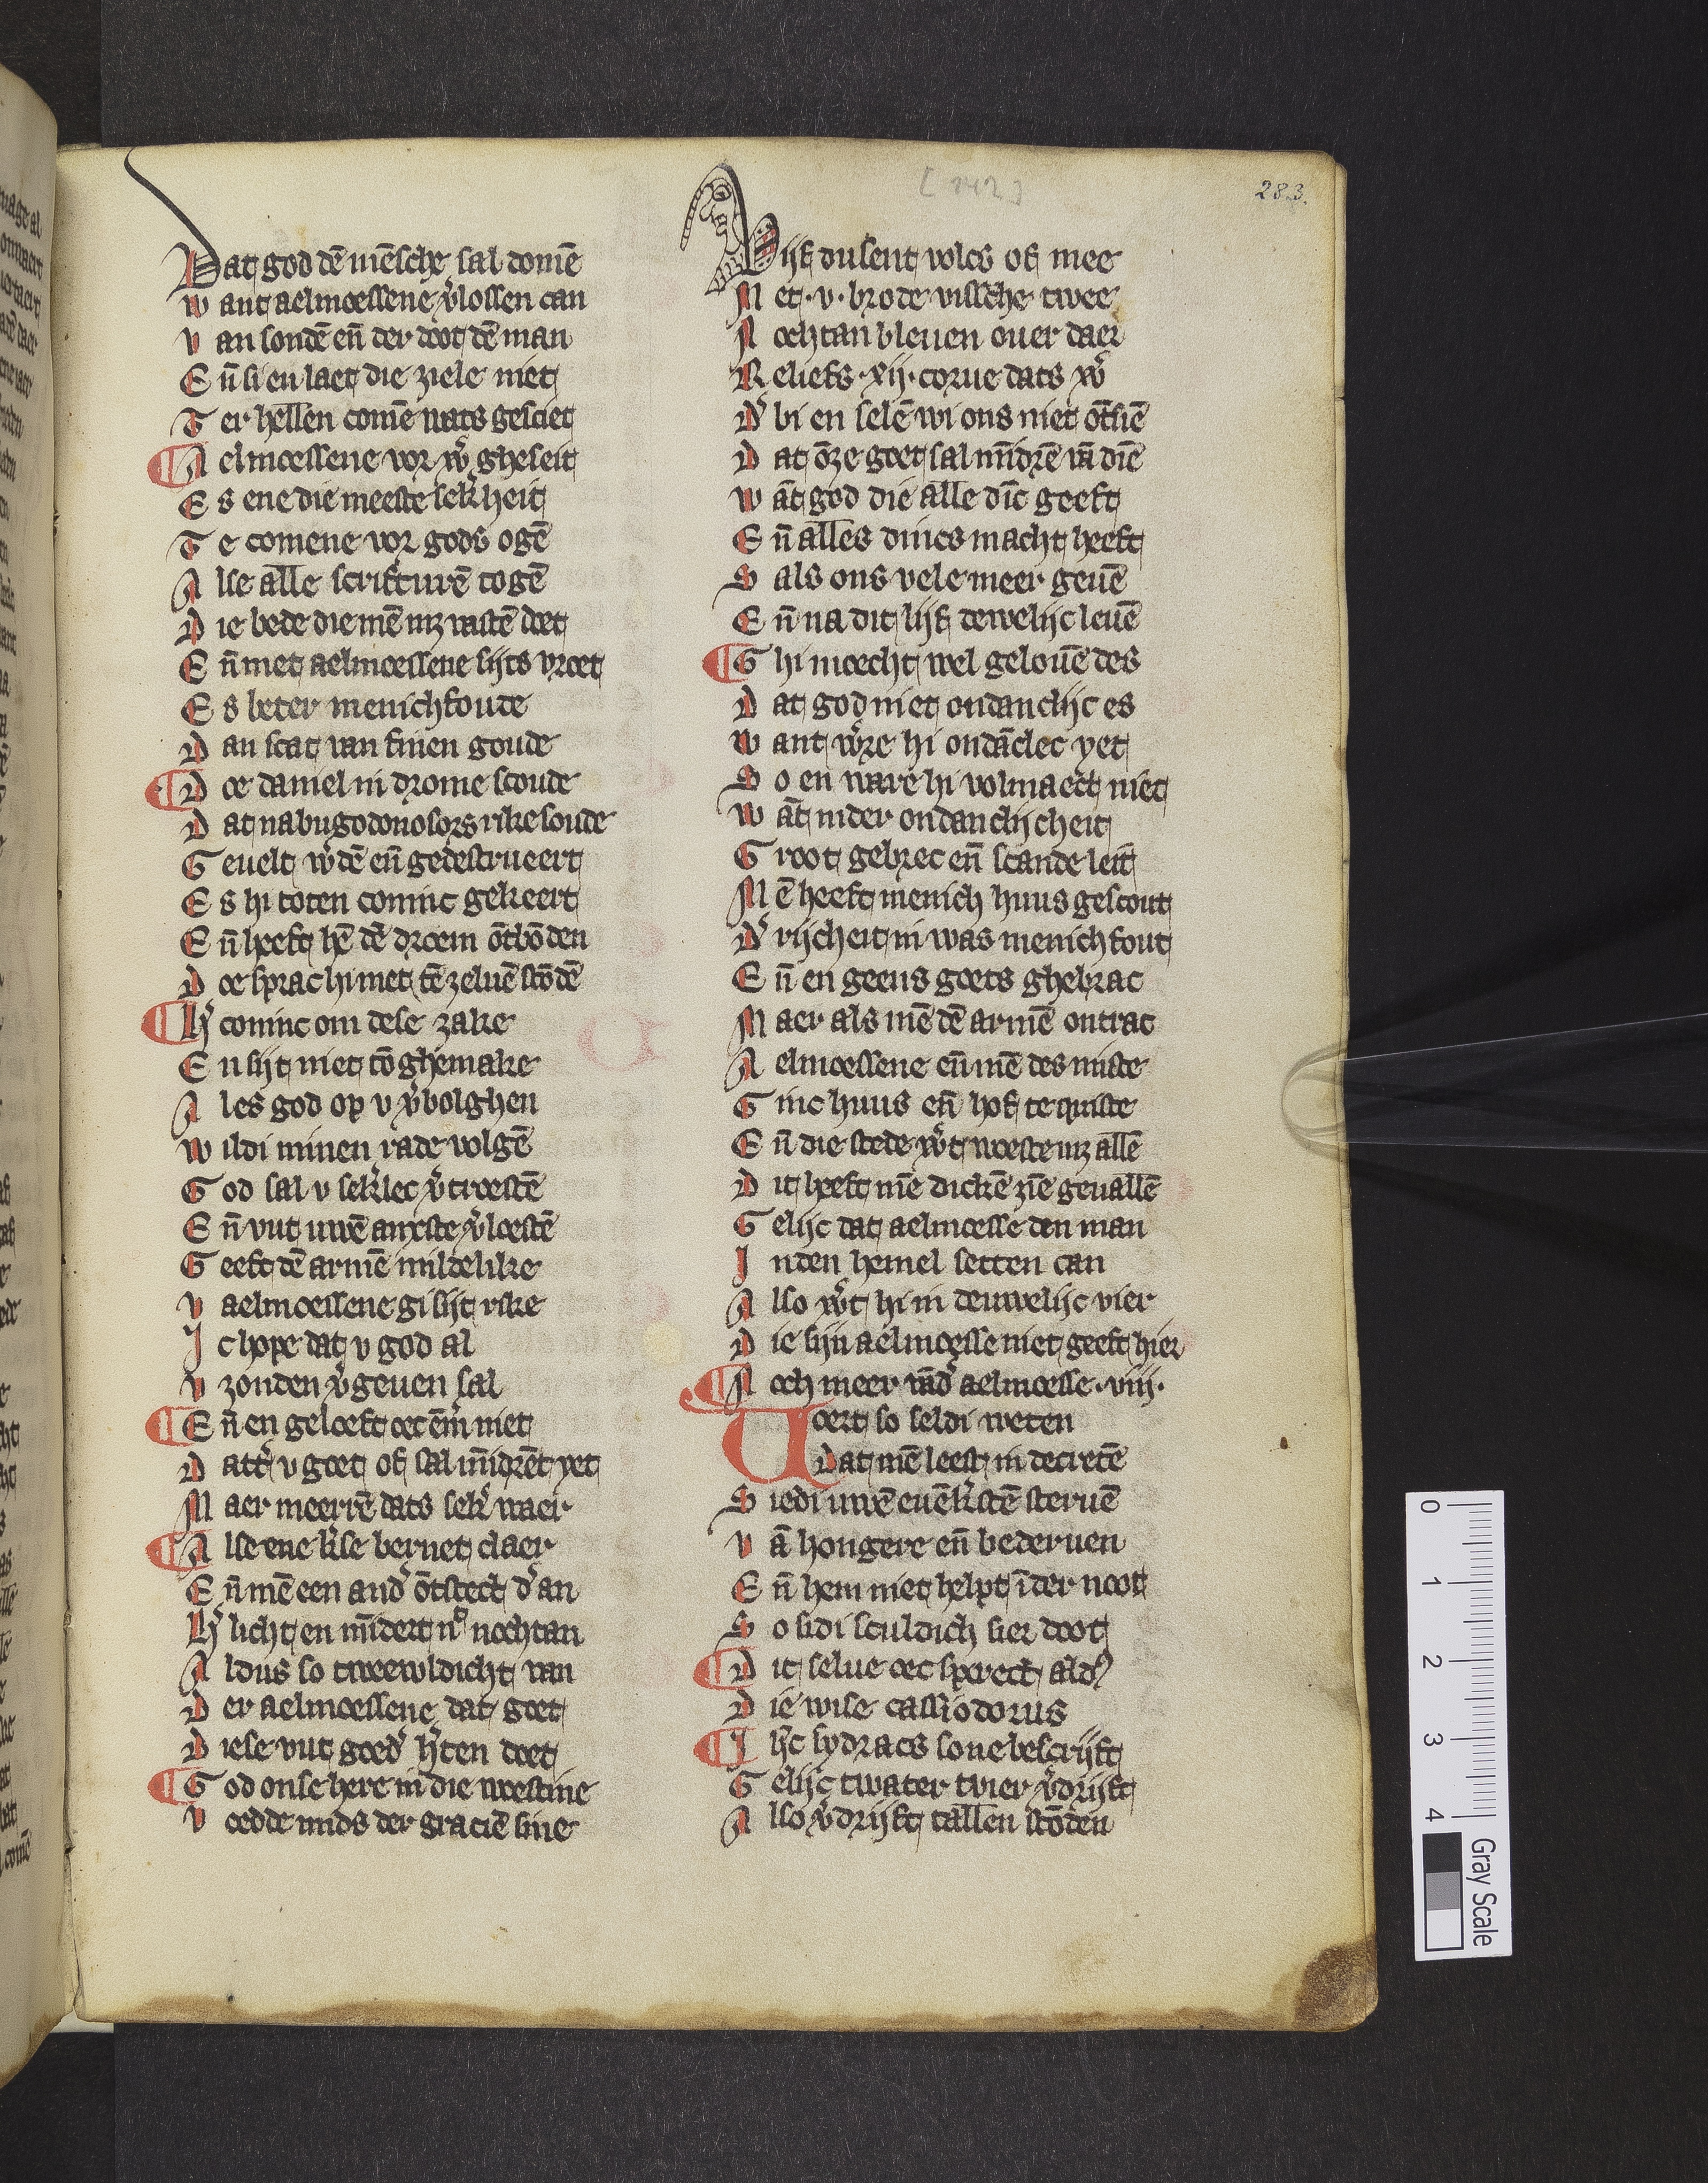 283.
[242]
Dat god dē mēsche sal domē
want aelmoessene v̓lossen can
van sondē en̄ der doot dē man
En̄ si en laet die ziele niet
Ter hellen comē wats gesciet
¶ Aelmoessene vor w̓ gheseit
Es ene die meeste sek̓heit
Te comene vor gods ogē
Alse alle scrifturē togē
Die bede die mē mz vastē doet
En̄ met aelmoessene sijts vroet
Es beter menichfoude
Dan scat van finen goude
¶ Doe daniel in drome scoude
Dat nabugodonosors rike soude
Geuelt w̓dē en̄ gedestrueert
Es hi toten coninc gekeert
En̄ heeft hē dē droem ōtbōden
Doe sprac hi met tē zeluē stōdē
¶ H̓ coninc om dese zake
En sijt niet tō ghemake
Al es god op v v̓bolghen
wildi minen rade volgē
God sal v sek̓lec v̓troestē
En̄ vut uwē anxste v̓loestē
Geeft dē armē mildelike
v aelmoessene gi sijt rike
Ic hope dat v god al
v zonden v̓geuen sal
¶ En̄ en geloeft oec em̄m̄ niet
Datt̓ v goet of sal mīdrēt yet
Maer meerrē dats sek̓ waer
¶ Alse ene k̓se bernet claer
En̄ mē een and̓ ōtstect d̓ an
H̓ licht en mīdert n̊ nochtan
Aldus so tweewldicht van
Der aelmoessene dat goet
Diese vut goed̓ h̓ten doet
¶ God onse here in die woestine
Voedde mids der graciē sine
Vijf dusent volcs of mee
Met .v. brode vissche twee
Nochtan bleuen ouer daer
Reliefs .xij. corue dats w̓
D̓ bi en selē wi ons niet ōtsiē
Dat ōze goet sal mīdrē vā diē
wāt god die alle dīc geeft
En̄ alles dincs macht heeft
Sals ons vele meer geuē
En̄ na dit lijf dewelijc leuē
¶ Ghi moecht wel gelouē des
Dat god niet ondanclijc es
want w̓re hi ondāclec yet
So en ware hi volmaect niet
wāt in der ondanclijcheit
Groot gebrec en̄ scande leit
Mē heeft menich huus gescout
D̓ rijcheit in was menichfout
En̄ en geens goets ghebrac
Maer als mē dē armē ontrac
Aelmoessene en̄ mē des miste
Ginc huus en̄ hof te quiste
En̄ die stede w̓t woeste mz allē
Dit heeft mē dickē ziē geuallē
Gelijc dat aelmoesse den man
Inden hemel setten can
Also w̓t hi in deuwelijc vier
Die sijn aelmoesse niet geeft hier
¶ Noch meer vād̓ aelmoesse .viij.
Voert so seldi weten
Dat mē leest in decretē
Siedi uwē euēk̓stē steruē
vā hongere en̄ bederuen
En̄ hem niet helpt ī der noot
So sidi sculdich sier doot
¶ Dit selue oec sprect ald9
Die wise cassiodorus
¶ Ih̓c sydracs sone bescrijft
Gelijc twater tvier v̓drijft
Also v̓drijft tallen stōden
0
1
2
3
4
Gray Scale